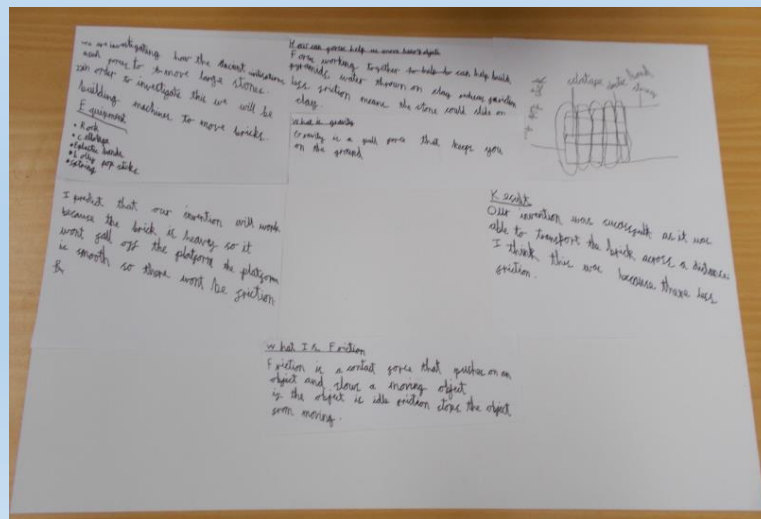 we are investigating how the ancient
used force to move large stones.
in order to investigate this we will be
building machines to move bricks.
Equipment
• Rock
• cellotape
• Elastic bands
• Lolly pop sticks
• string
How can forces help us move
Forces working together to help to can help build
pyramids water thrown on clay reduces friction
less friction means the stone could slide on
clay.
What is gravity
Gravity is a pull force that keeps you
on the ground
lolly pop stick
elastic band
string
I predict that our invention will work
because the brick is heavy so it
wont fall off the platform the platform
is smooth so there wont be friction
Result
Our invention was successful as it was
able to transport the brick across a distance
I think this was because there less
friction.
What Is Friction
Friction is a contact force that pushes on an
object and slows a moving object
if the object is idle friction stops the object
from moving.